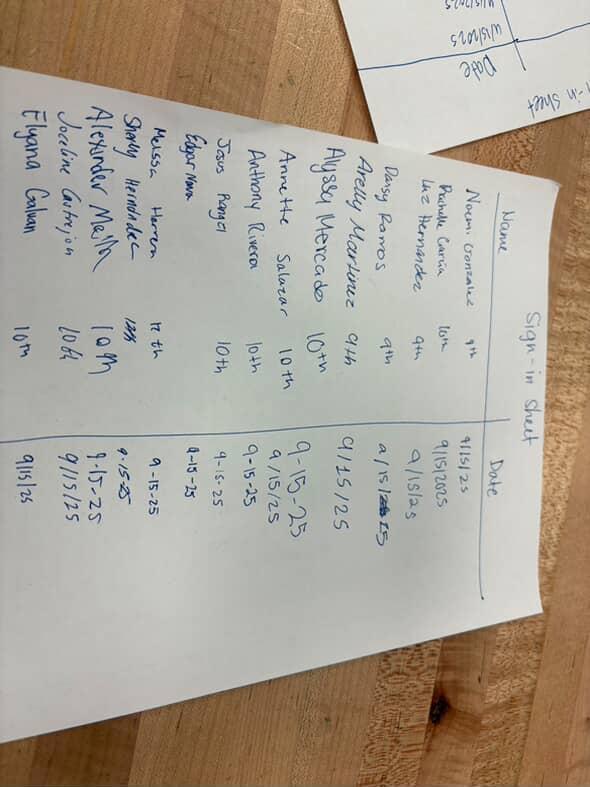 Sign-in sheet
Name Date
Noemi Gonzalez 9th 9/15/25
Michelle Garcia 10th 9/15/2025
Luz Hernandez 9th 9/15/25
Daisy Ramos 9th 9/15/25
Arelly Martinez 9th 9/15/25
Alyssa Mercado 10th 9-15-25
Annette Salazar 10th 9/15/25
Anthony Rivera 10th 9-15-25
Jesus Rangel 10th 9-15-25
Edgar Nava 9-15-25
Melissa Herrera 12th 9-15-25
Sherly Hernandez 12th 9-15-25
Alexander 10th 9-15-25
Joceline Castrejon 10th 9/15/25
Elyana Galvan 10th 9/15/25
-in sheet
Date
9/15/2025
9/15/2025